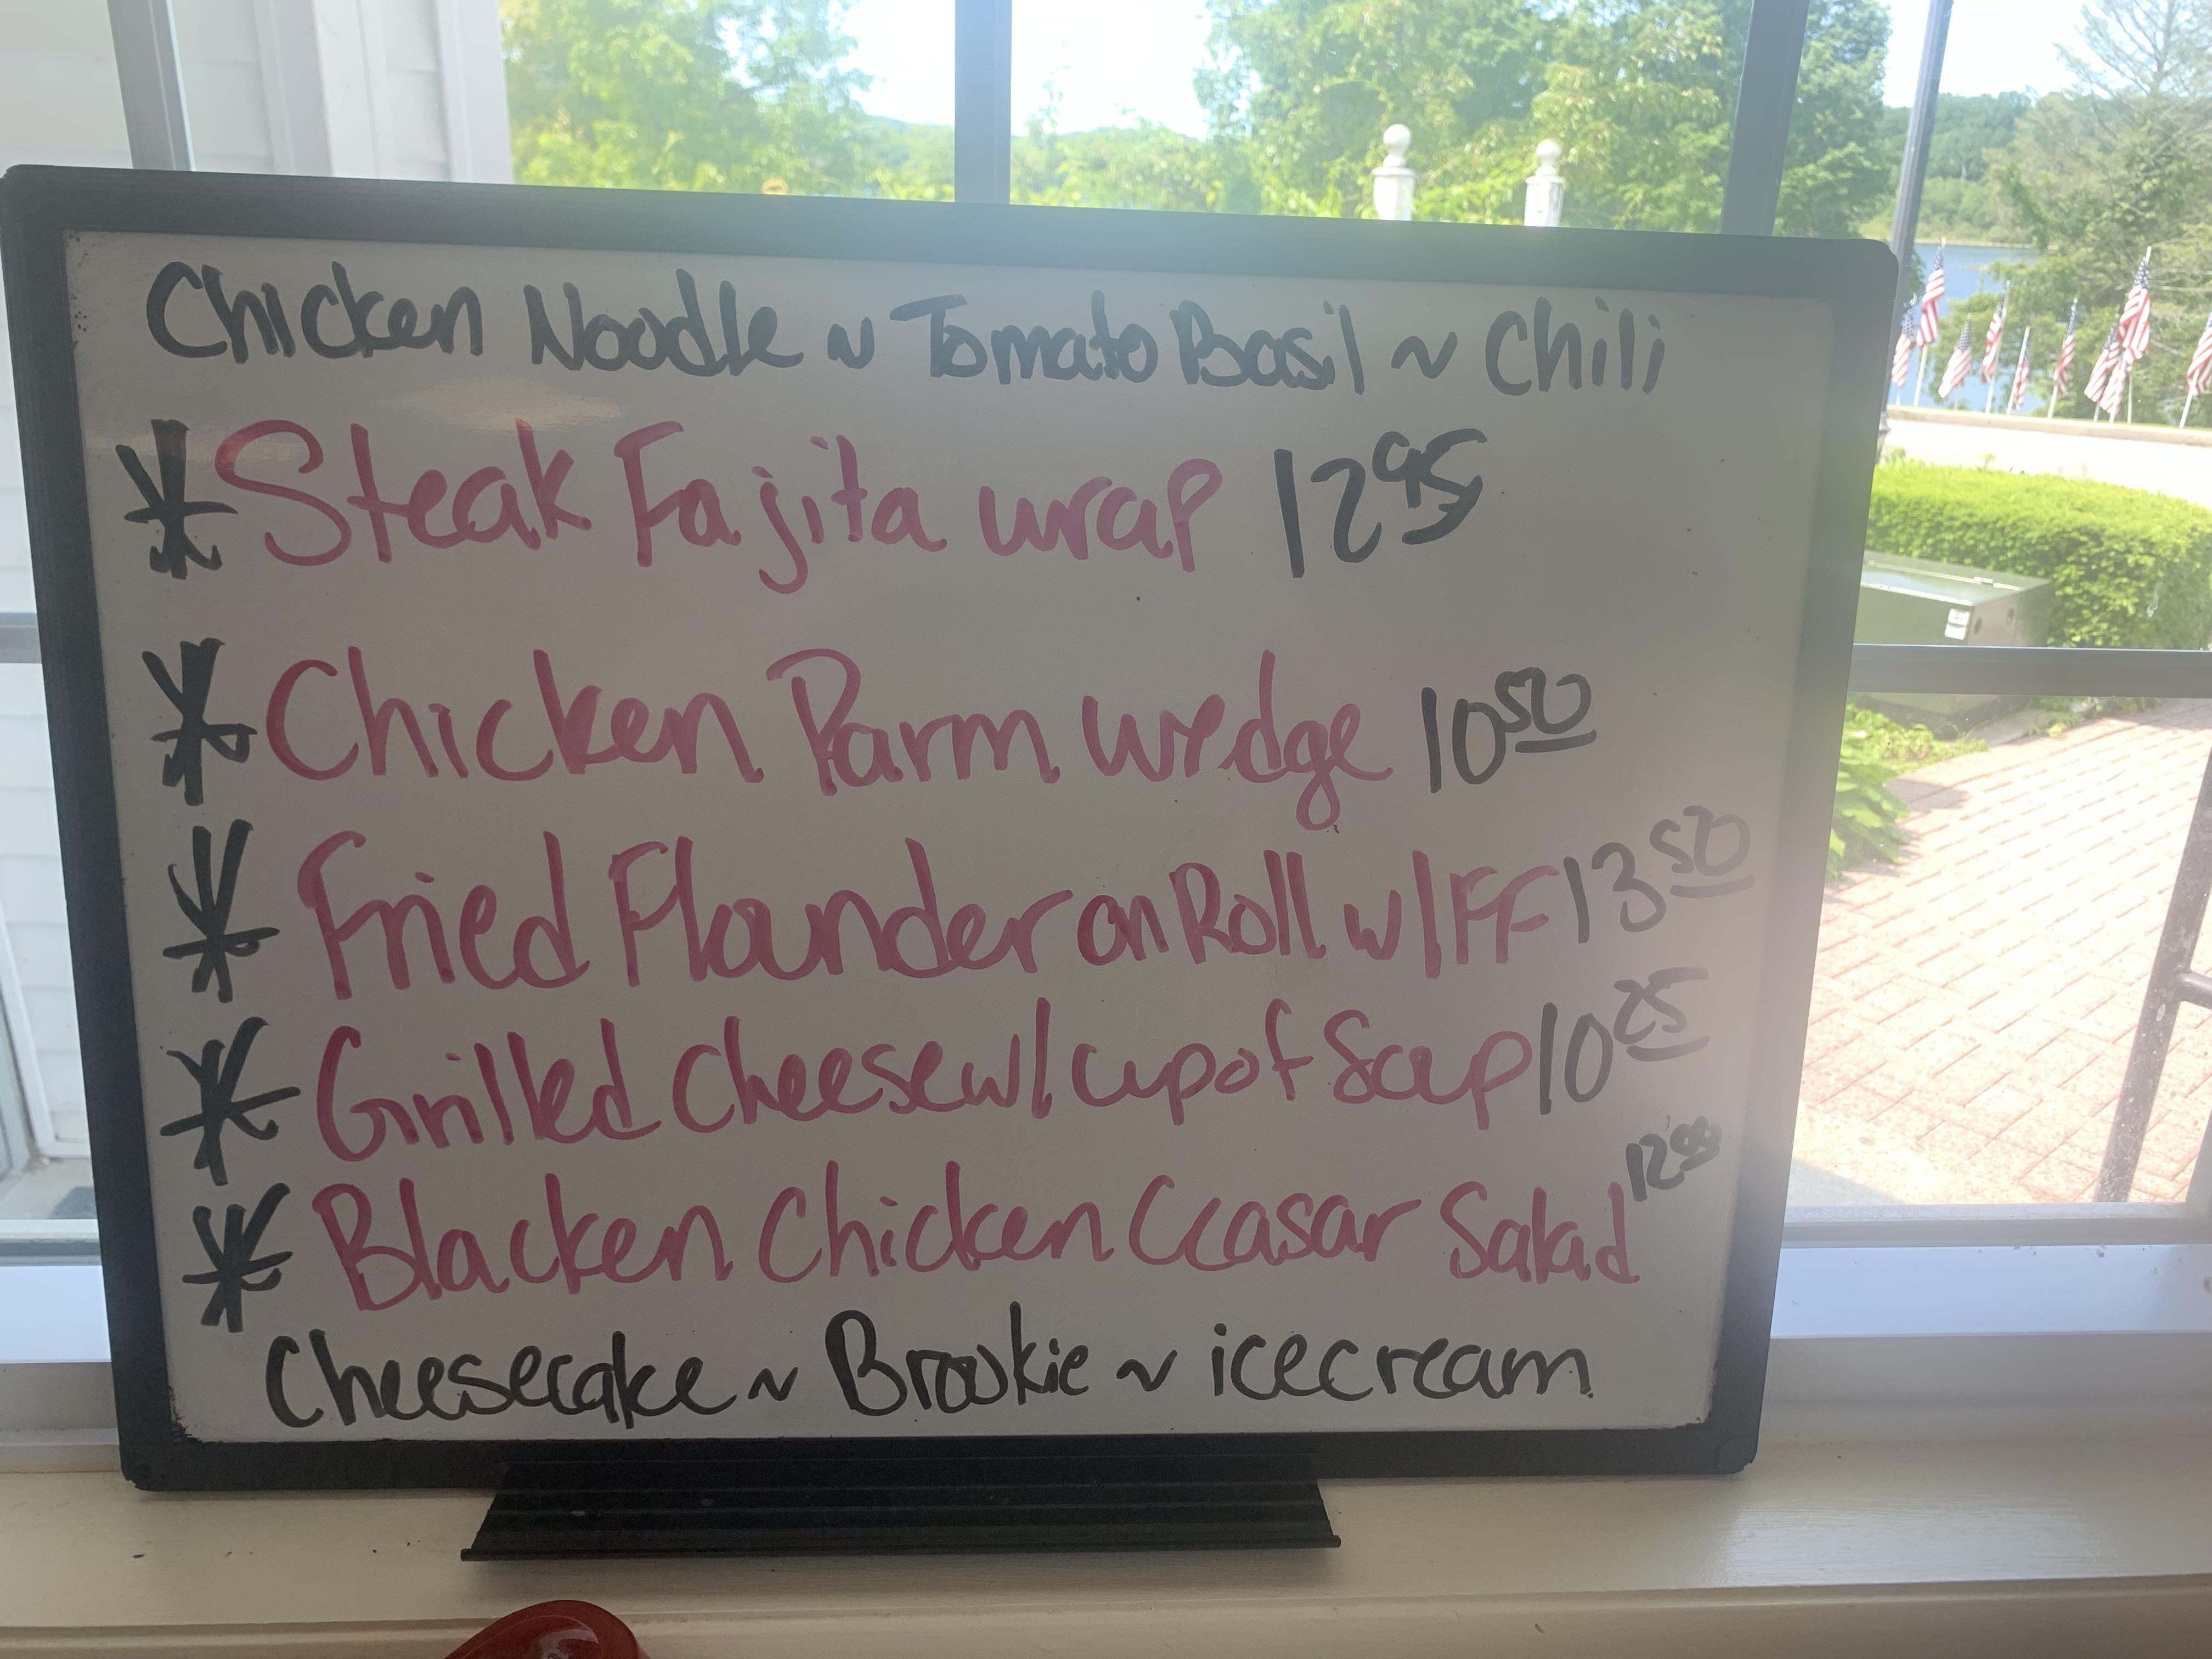 Chicken Noodle ~ Tomato Basil ~ Chili
* Steak Fajita wrap 12 95
* Chicken Parm wedge 10 50
* Fried Flounder on Roll w/ FF 13 50
* Grilled cheese w/ cup of Soup 10 25
* Blacken Chicken Ceasar Salad 12 99
Cheesecake ~ Brookie ~ icecream